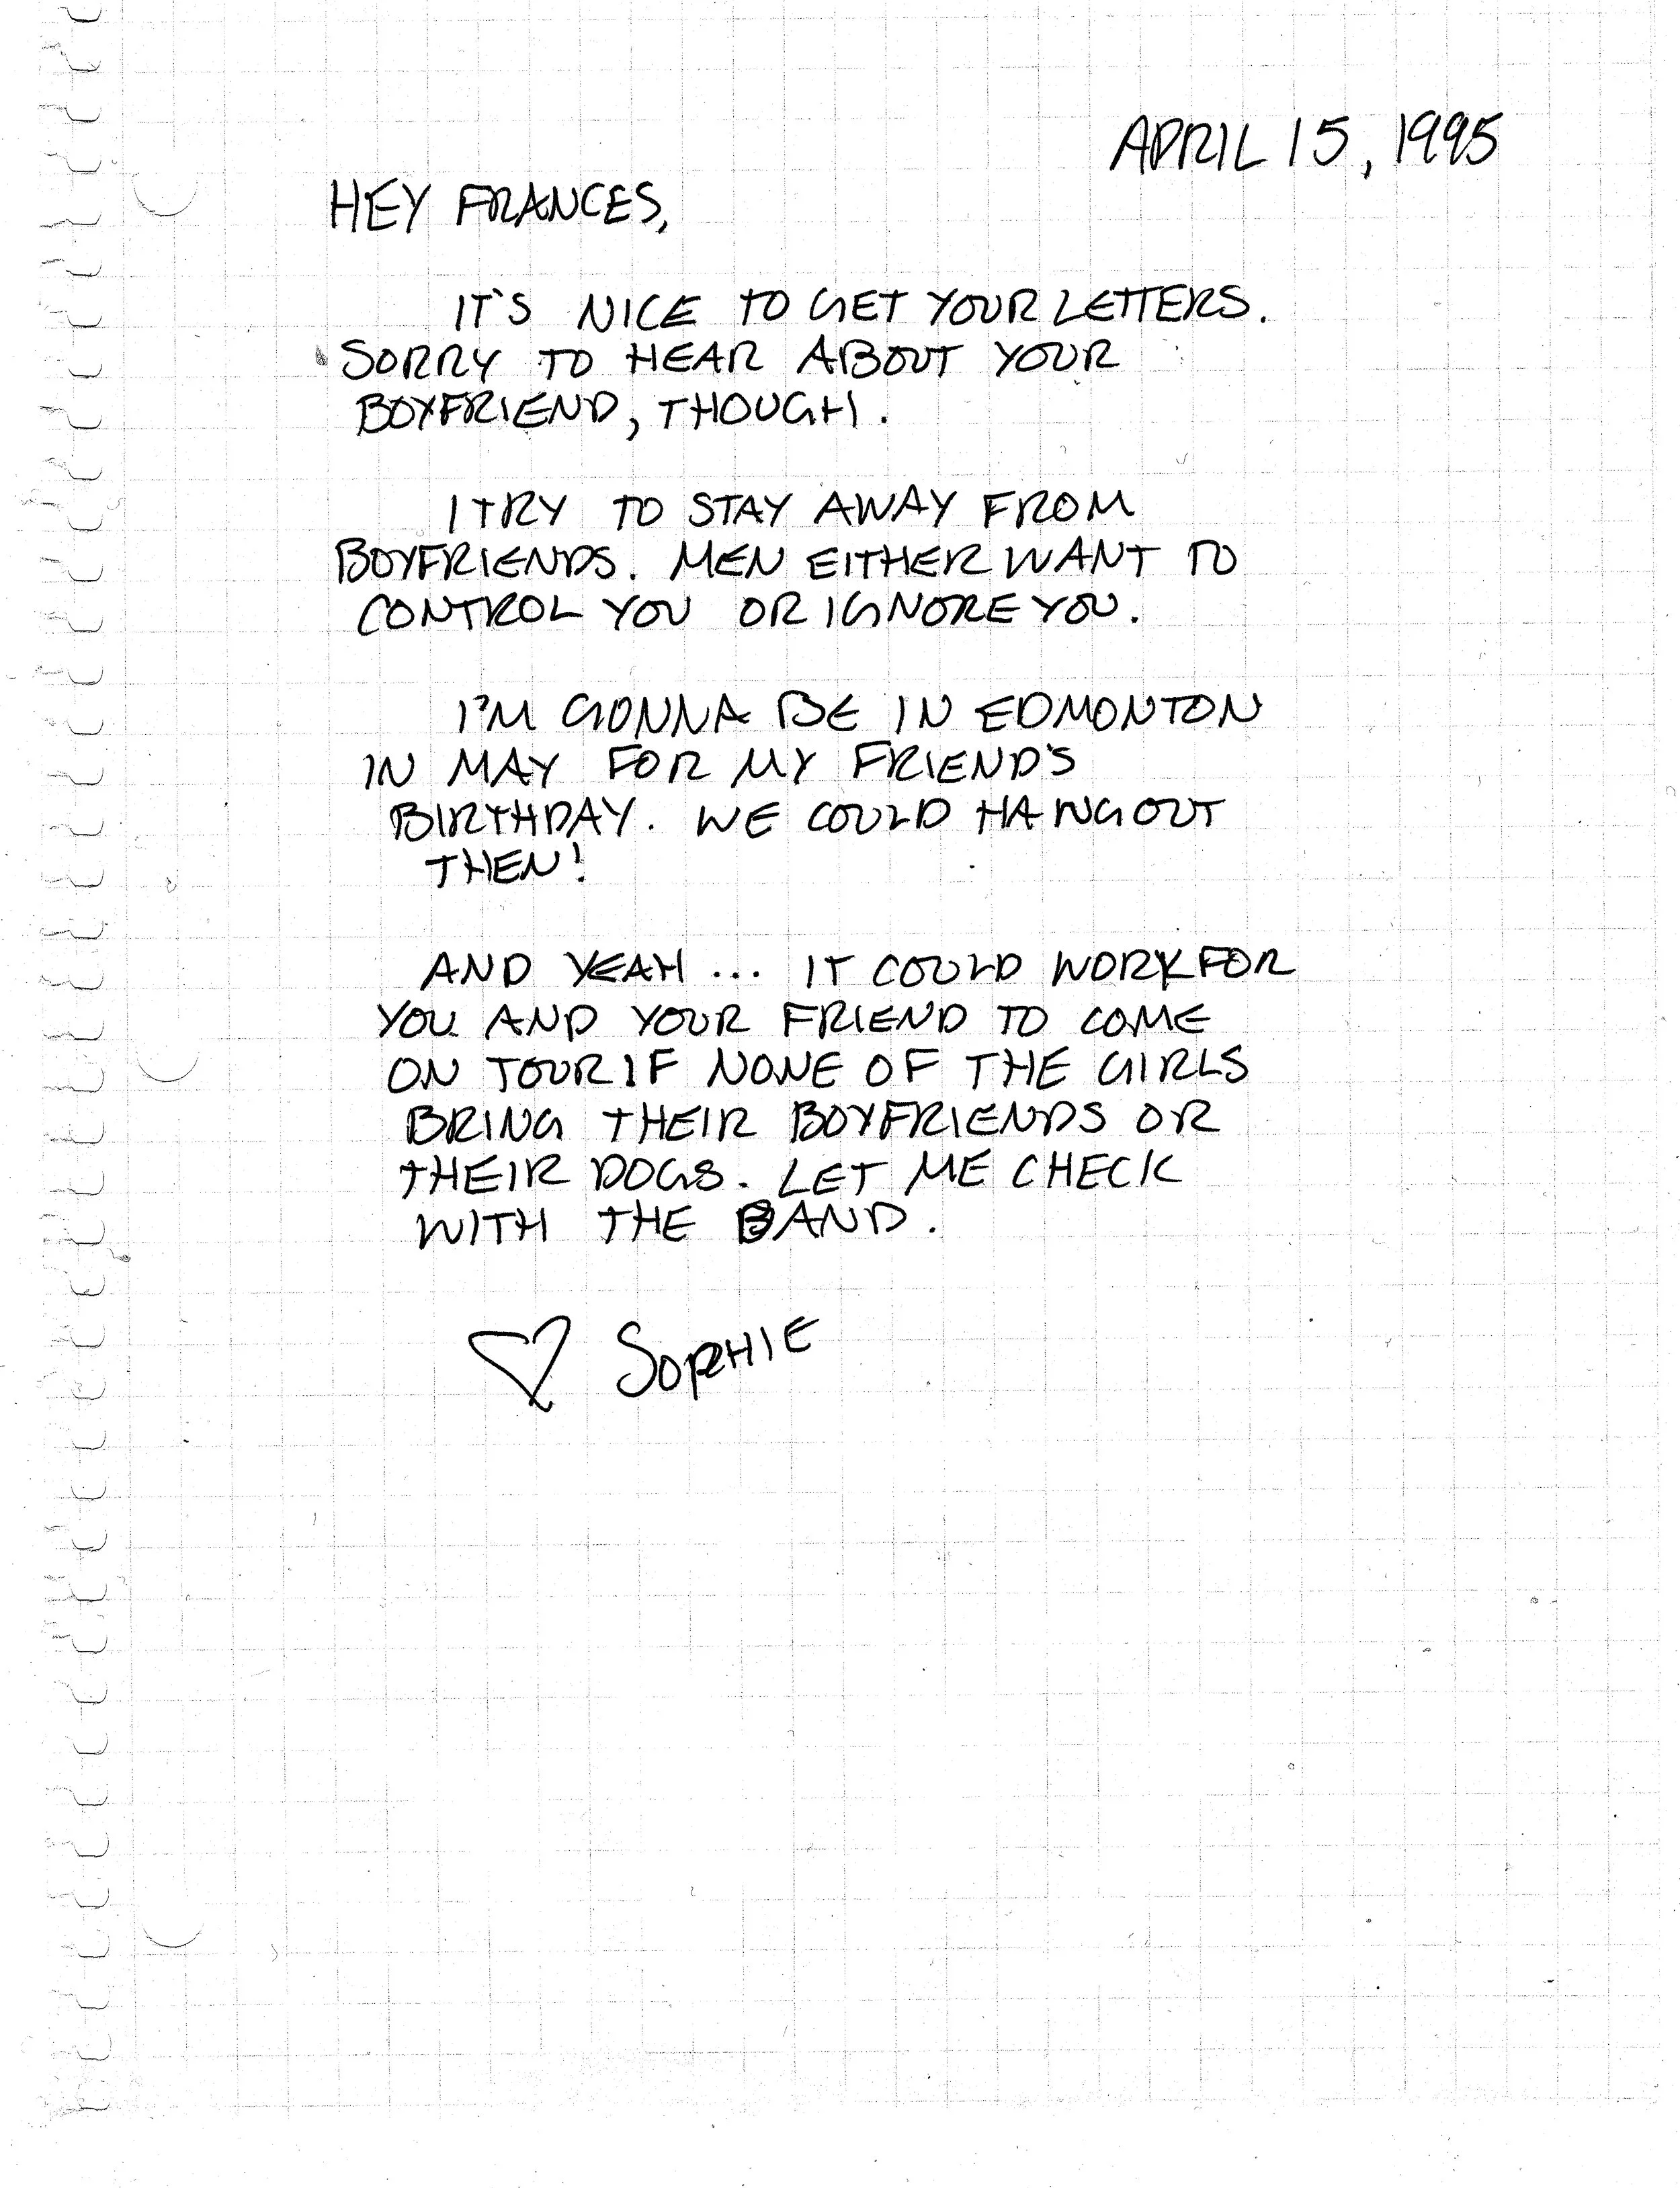 APRIL 15, 1995
HEY FRANCES,
IT'S NICE TO GET YOUR LETTERS.
SORRY TO HEAR ABOUT YOUR
BOYFRIEND, THOUGH.
I TRY TO STAY AWAY FROM
BOYFRIENDS. MEN EITHER WANT TO
CONTROL YOU OR IGNORE YOU.
I'M GONNA BE IN EDMONTON
IN MAY FOR MY FRIEND'S
BIRTHDAY. WE COULD HANG OUT
THEN!
AND YEAH... IT COULD WORK FOR
YOU AND YOUR FRIEND TO COME
ON TOUR IF NONE OF THE GIRLS
BRING THEIR BOYFRIENDS OR
THEIR DOGS. LET ME CHECK
WITH THE BAND.
♡ SOPHIE